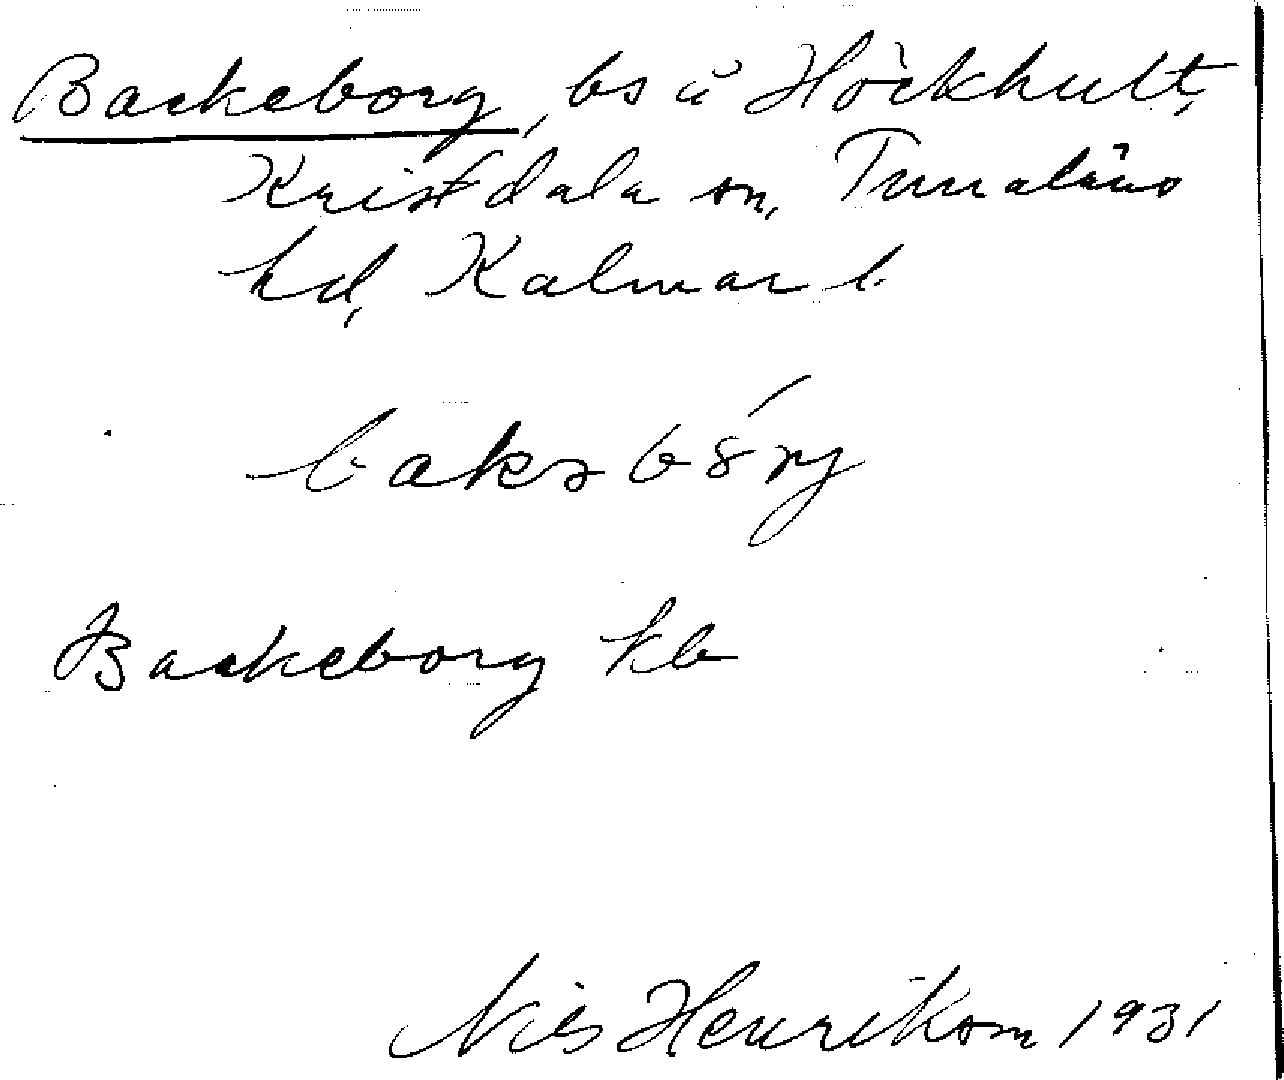 Backeborg, bs å Höckhult,
Kristdala sn, Tunaläns
hd, Kalmar l.
Backeborg kb
Nils Henrikson 1931